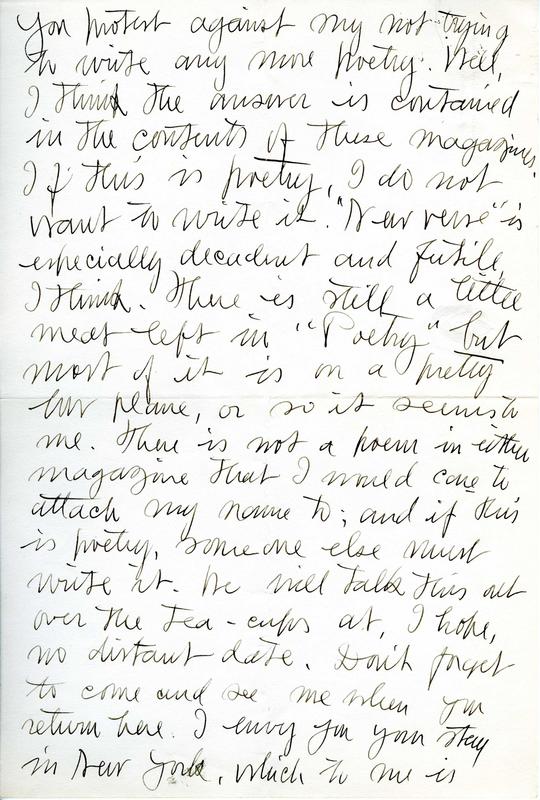 You protest against my not trying
to write any more poetry. Well,
I think the answer is contained
in the contents of these magazines.
If this is poetry, I do not
want to write it. "New verse" is
especially decadent and futile,
I think. There is still a little
meat left in "Poetry" but
most of it is on a pretty
low plane, or so it seems to
me. There is not a poem in either
magazine that I would care to
attach my name to; and if this
is poetry, someone else must
write it. We will talk this out
over the tea-cups at, I hope,
no distant date. Don't forget
to come and see me when you
return here. I envy you your stay
in New York, which to me is